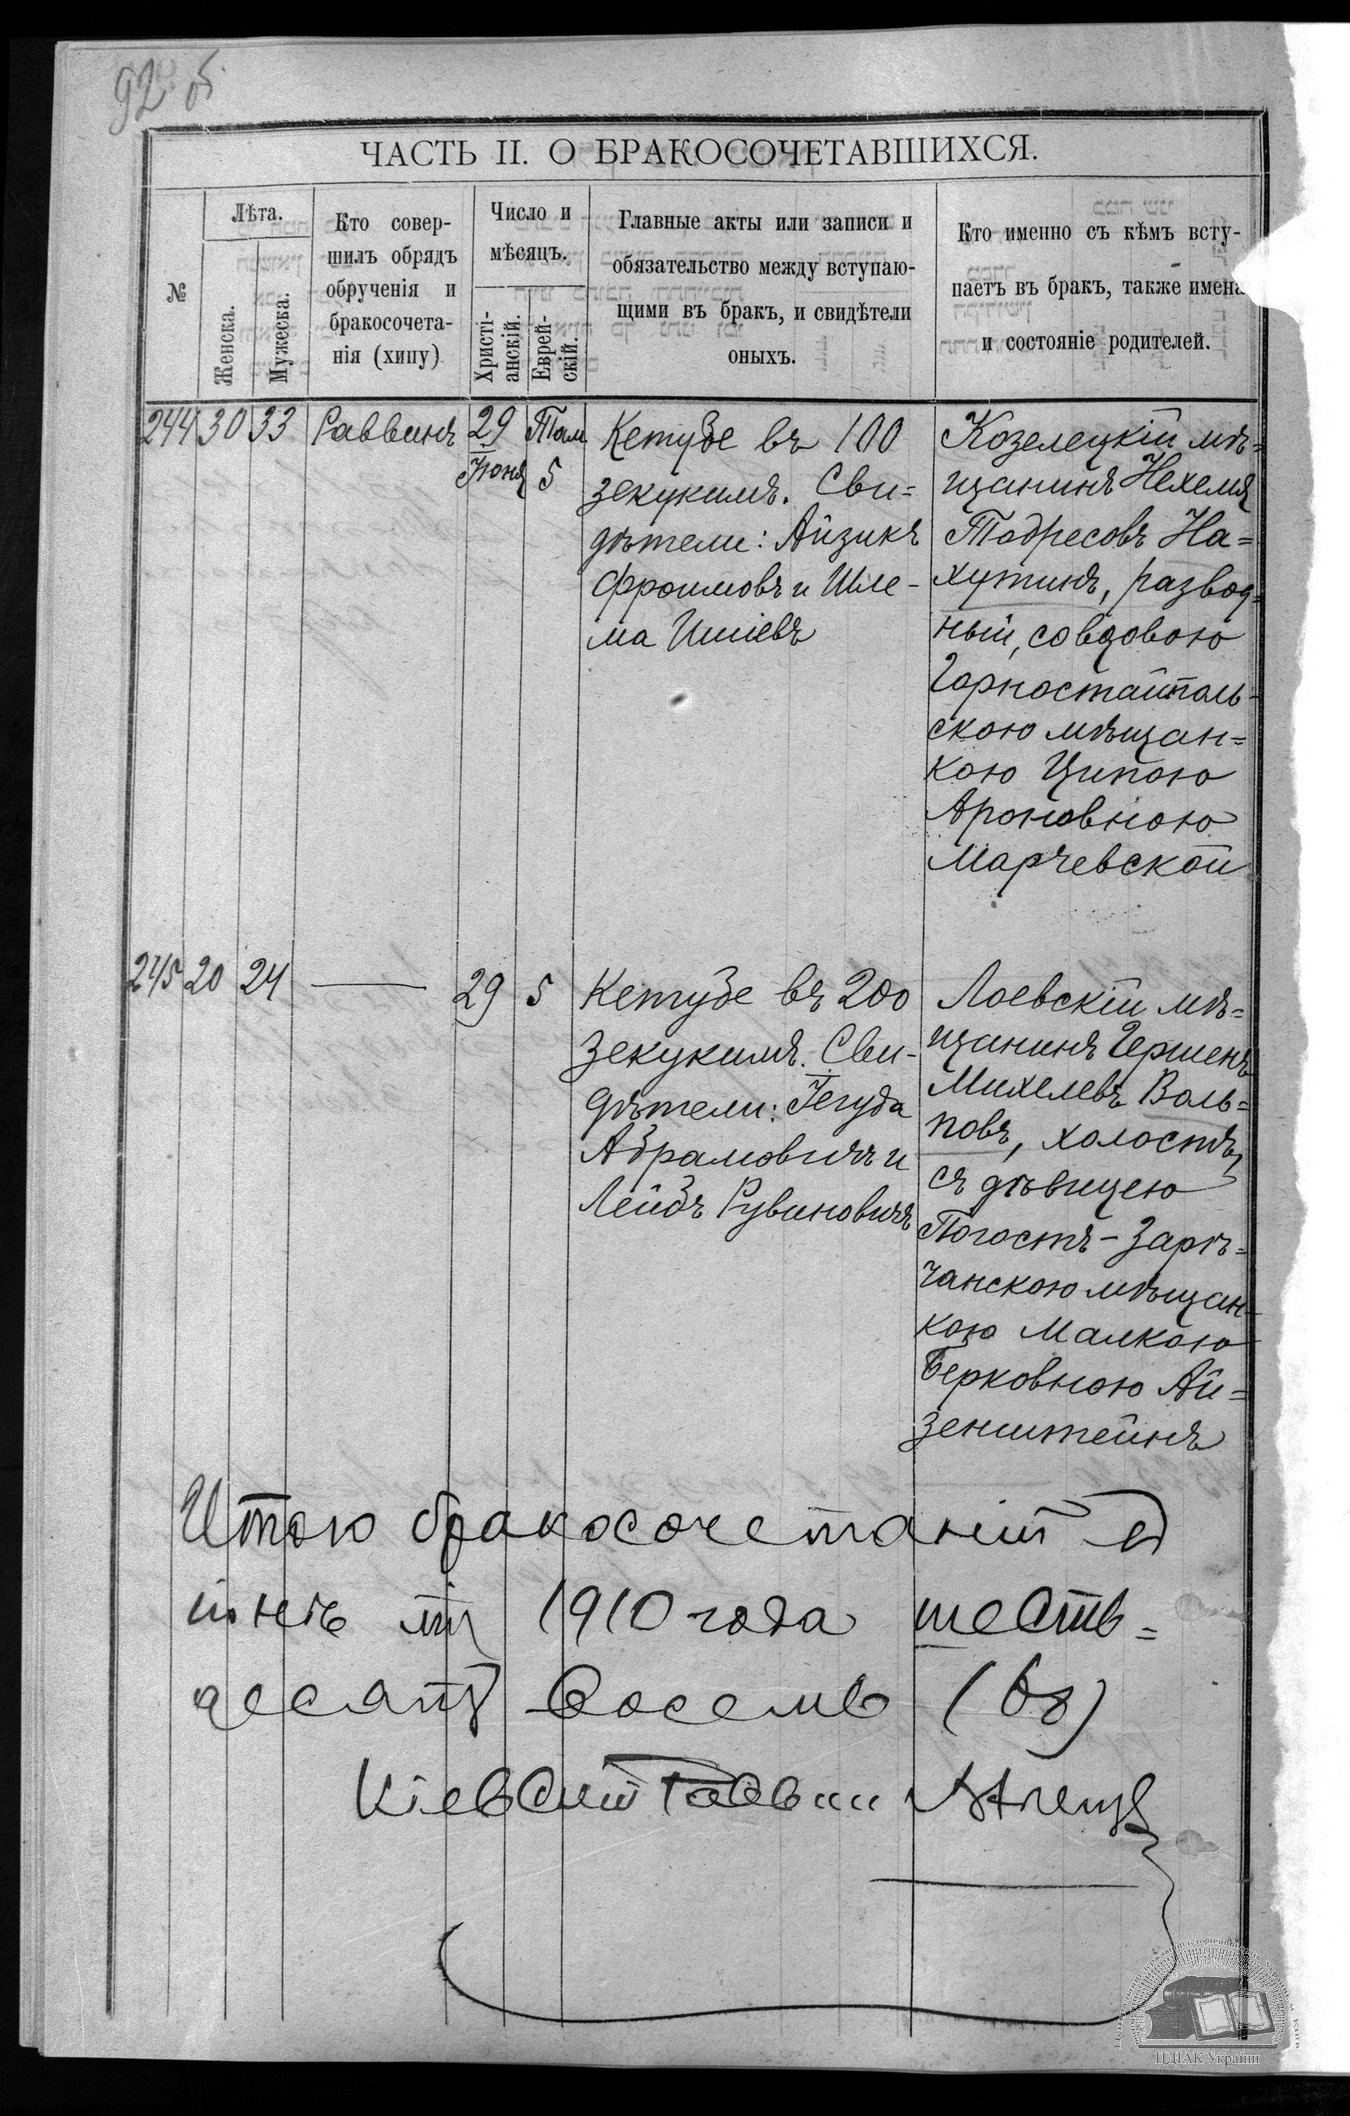 92 об
ЧАСТЬ II. О БРАКОСОЧЕТАВШИХСЯ.
№
Лѣта.
Женска.
Мужеска.
Кто совер-
шилъ обрядъ
обрученія и
бракосочета-
нія (хипу)
Число и
мѣсяцъ.
Христі-
анскій.
Еврей-
скій.
Главные акты или записи и
обязательство между вступаю-
щими въ бракъ, и свидѣтели
оныхъ.
Кто именно съ кѣмъ всту-
паетъ въ бракъ, также имена
и состояніе родителей.
244 30 33 Раввинъ 29 Іюня Там 5
Кетубе въ 100
зекукимъ. Сви=
дѣтели: Айзикъ
Фроимовъ и Шле-
ма Ишіевъ
Козелецкій мѣ=
щанинъ Нехемя
Тодресовъ На=
хутинъ, развод=
ный, со вдовою
Горностайполь-
скою мѣщан=
кою Ципою
Ароновною
Марчевской
245 20 24 — 29 5
Кетубе въ 200
зекукимъ. Сви-
дѣтели: Іегуда
Абрамовичъ и
Лейбъ Рувиновичъ
Лоевскій мѣ=
щанинъ Гершенъ
Михелевъ Воль=
повъ, холостъ,
съ дѣвицею
Погостъ-Зарѣ=
чанскою мѣщан-
кою Малкою
Берковною Ай=
зенштейнъ
Итого бракосочетаній въ
іюнѣ мц 1910 года шестъ=
десятъ восемь (68)
Кіевскій Раввин
ЦДІАК України